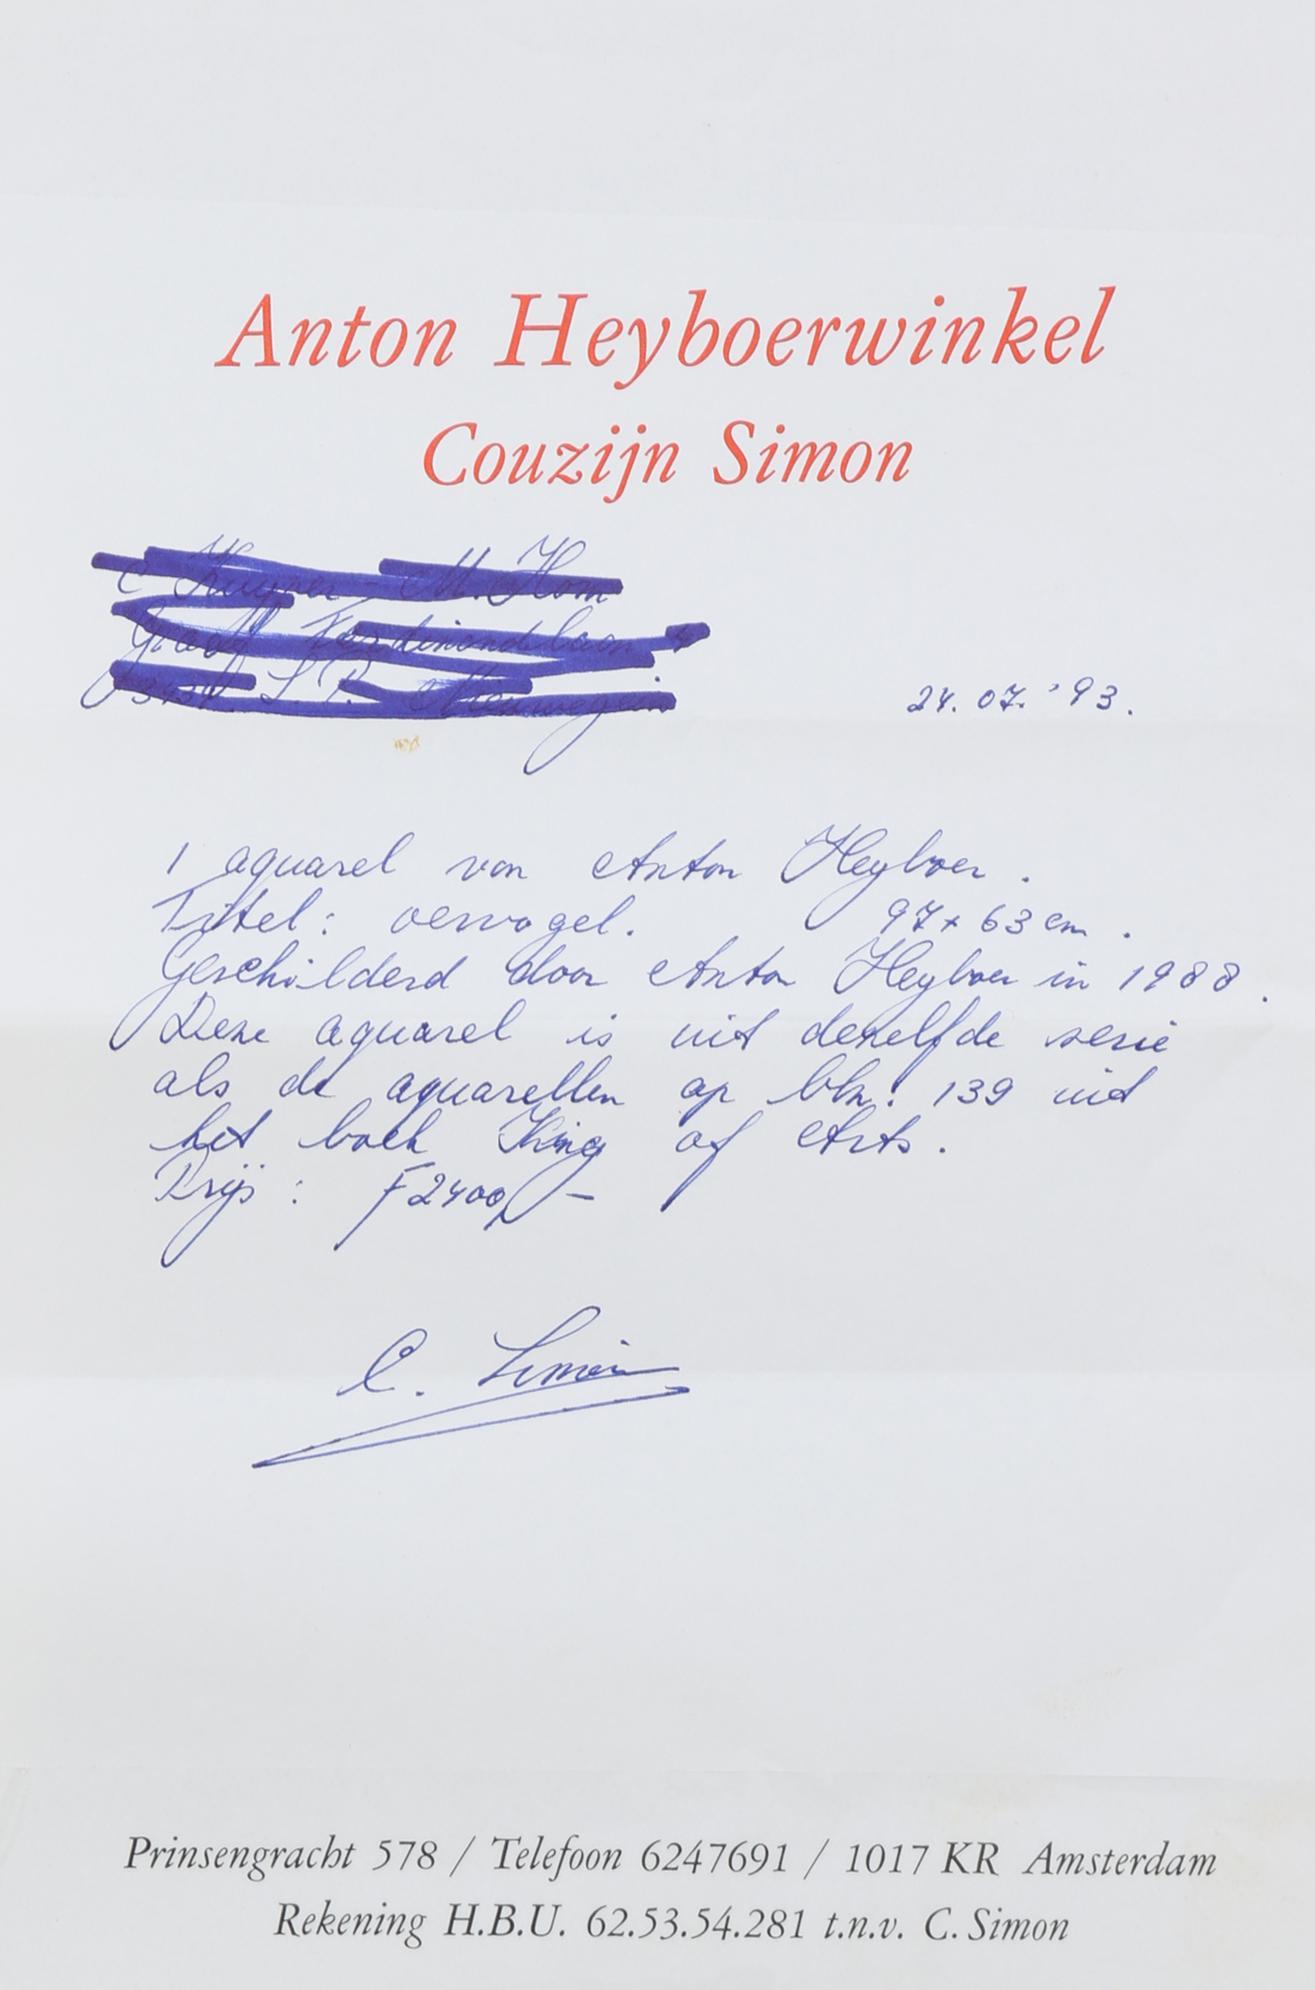 Anton Heyboerwinkel
Couzijn Simon
24. 07. '93.
1 aquarel van Anton Heyboer.
Titel: oervogel. 97 x 63 cm.
Geschilderd door Anton Heyboer in 1988.
Deze aquarel is uit dezelfde serie
als de aquarellen op blz. 139 uit
het boek King of Arts.
Prijs: F 2400,-
C. Simon
Prinsengracht 578 / Telefoon 6247691 / 1017 KR Amsterdam
Rekening H.B.U. 62.53.54.281 t.n.v. C. Simon